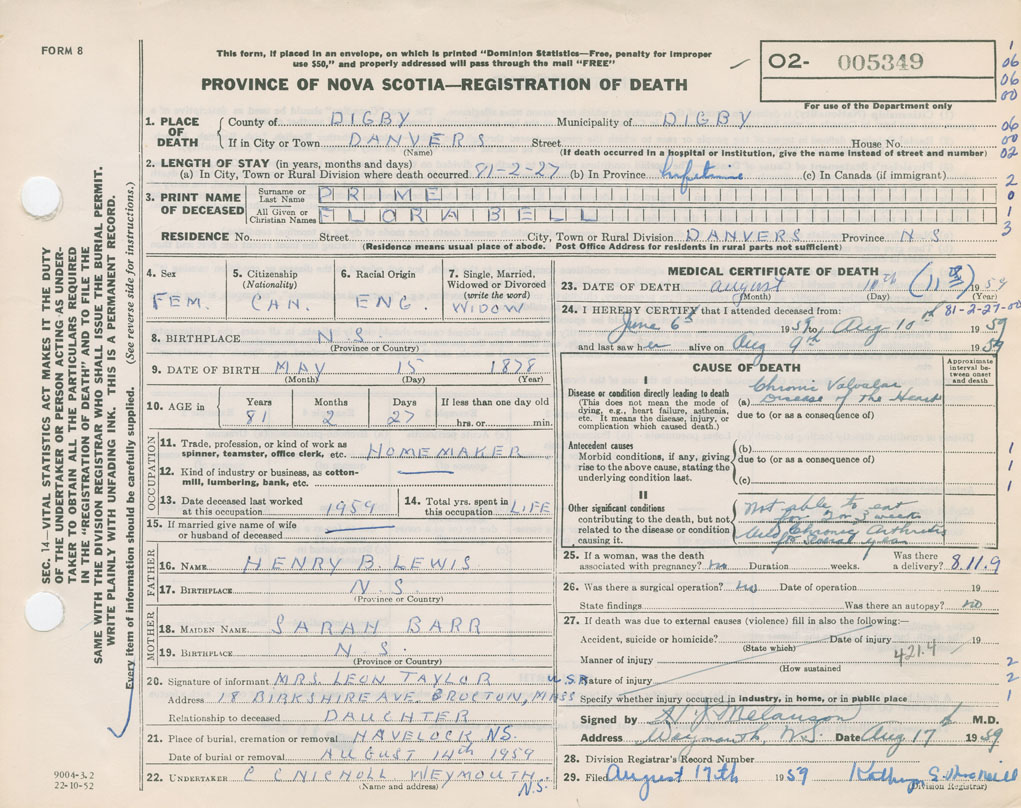 FORM 8
This form, if placed in an envelope, on which is printed "Dominion Statistics—Free, penalty for improper
use $50," and properly addressed will pass through the mail "FREE"
PROVINCE OF NOVA SCOTIA—REGISTRATION OF DEATH
O2- 005349
For use of the Department only
1
06
06
00
06
00
02
2
0
1
3
1. PLACE OF DEATH
County of DIGBY Municipality of DIGBY
If in City or Town DANVERS Street House No.
(Name) (If death occurred in a hospital or institution, give the name instead of street and number)
2. LENGTH OF STAY (in years, months and days)
(a) In City, Town or Rural Division where death occurred 81-2-27 (b) In Province Lifetime (c) In Canada (if immigrant)
3. PRINT NAME OF DECEASED
Surname or Last Name PRIME
All Given or Christian Names FLORA BELL
RESIDENCE No. Street City, Town or Rural Division DANVERS Province N S
(Residence means usual place of abode. Post Office Address for residents in rural parts not sufficient)
4. Sex
FEM.
5. Citizenship
(Nationality)
CAN.
6. Racial Origin
ENG.
7. Single, Married, Widowed or Divorced
(write the word)
WIDOW
8. BIRTHPLACE N.S.
(Province or Country)
9. DATE OF BIRTH MAY 15 1878
(Month) (Day) (Year)
10. AGE in
Years Months Days If less than one day old
81 2 27 hrs. or min.
OCCUPATION
11. Trade, profession, or kind of work as
spinner, teamster, office clerk, etc. HOMEMAKER
12. Kind of industry or business, as cotton-
mill, lumbering, bank, etc.
13. Date deceased last worked
at this occupation 1959
14. Total yrs. spent in
this occupation LIFE
15. If married give name of wife
or husband of deceased
FATHER
16. NAME HENRY B. LEWIS
17. BIRTHPLACE N.S.
(Province or Country)
MOTHER
18. MAIDEN NAME SARAH BARR
19. BIRTHPLACE N.S.
(Province or Country)
20. Signature of informant MRS LEON TAYLOR
Address 18 BIRKSHIRE AVE. BROCTON, MASS U.S.A
Relationship to deceased DAUCHTER
21. Place of burial, cremation or removal HAVELOCK NS.
Date of burial or removal AUGUST 14th 1959
22. UNDERTAKER C C NICHOLL WEYMOUTH N.S.
(Name and address)
MEDICAL CERTIFICATE OF DEATH
23. DATE OF DEATH august 10th (11th) 1959
(Month) (Day) (Year)
24. I HEREBY CERTIFY that I attended deceased from:
81-2-27-00
June 6th 1959 to Aug 10th 1959
and last saw her alive on Aug 9th 1959
CAUSE OF DEATH
Approximate interval between onset and death
I
Disease or condition directly leading to death
(This does not mean the mode of
dying, e.g., heart failure, asthenia,
etc. It means the disease, injury, or
complication which caused death.)
(a) Chronic Valvular
Disease of the Heart
due to (or as a consequence of)
Antecedent causes
Morbid conditions, if any, giving
rise to the above cause, stating the
underlying condition last.
(b)
due to (or as a consequence of)
(c)
1
1
1
II
Other significant conditions
contributing to the death, but not
related to the disease or condition
causing it.
Not able to eat
for 2 or 3 weeks
Also Chronic Arthritis
for several years
25. If a woman, was the death
associated with pregnancy? no Duration weeks. Was there a delivery? 8.11.9
26. Was there a surgical operation? no Date of operation 19
State findings Was there an autopsy? no
27. If death was due to external causes (violence) fill in also the following:—
Accident, suicide or homicide? Date of injury 19
(State which)
421.4
Manner of injury
(How sustained
Nature of injury
Specify whether injury occurred in industry, in home, or in public place
2
2
1
Signed by H J Melanson M.D.
Address Weymouth, N.S. Date Aug 17 1959
28. Division Registrar's Record Number
29. Filed August 17th 1959 Kathryn S. MacNeill
(Division Registrar)
SEC. 14—VITAL STATISTICS ACT MAKES IT THE DUTY
OF THE UNDERTAKER OR PERSON ACTING AS UNDER-
TAKER TO OBTAIN ALL THE PARTICULARS REQUIRED
IN THE "REGISTRATION OF DEATH" AND TO FILE THE
SAME WITH THE DIVISION REGISTRAR WHO SHALL ISSUE THE BURIAL PERMIT.
WRITE PLAINLY WITH UNFADING INK. THIS IS A PERMANENT RECORD.
Every item of information should be carefully supplied. (See reverse side for instructions.)
9004-3.2
22-10-52